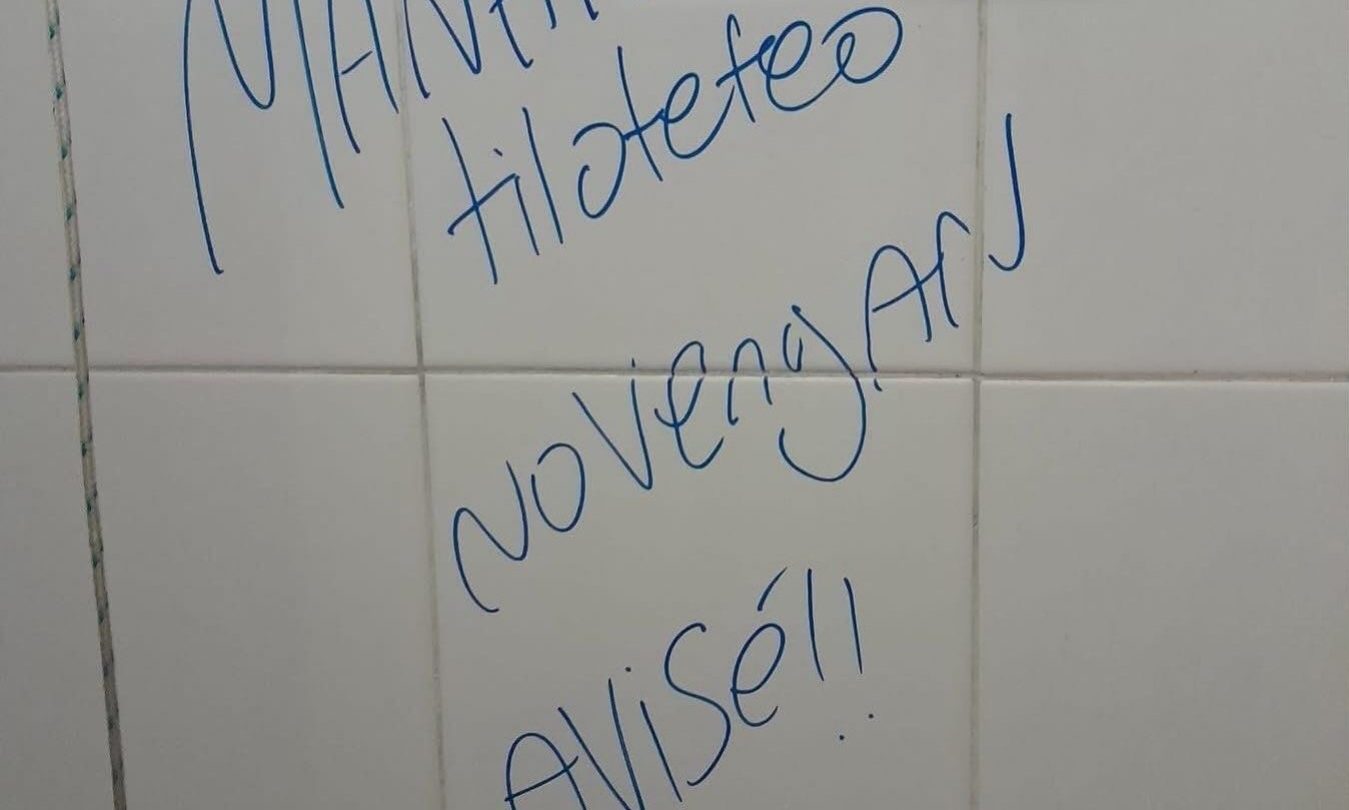 tiloteteo
NO VengAN
AViSé!!